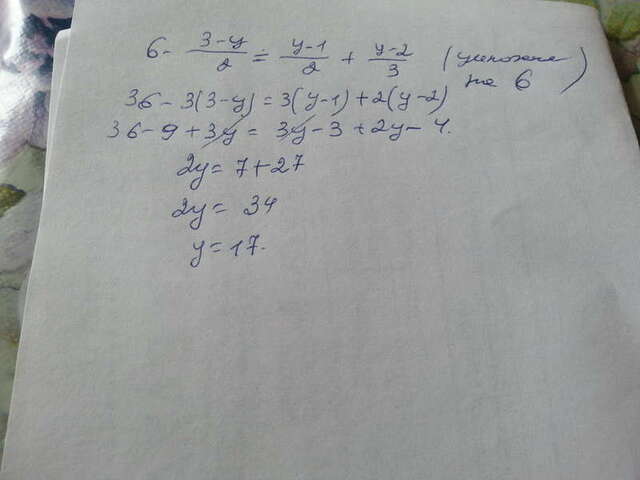 6 - (3-y)/2 = (y-1)/2 + (y-2)/3 (умножаем на 6)
36 - 3(3-y) = 3(y-1) + 2(y-2)
36 - 9 + 3y = 3y - 3 + 2y - 4.
2y = 7 + 27
2y = 34
y = 17.